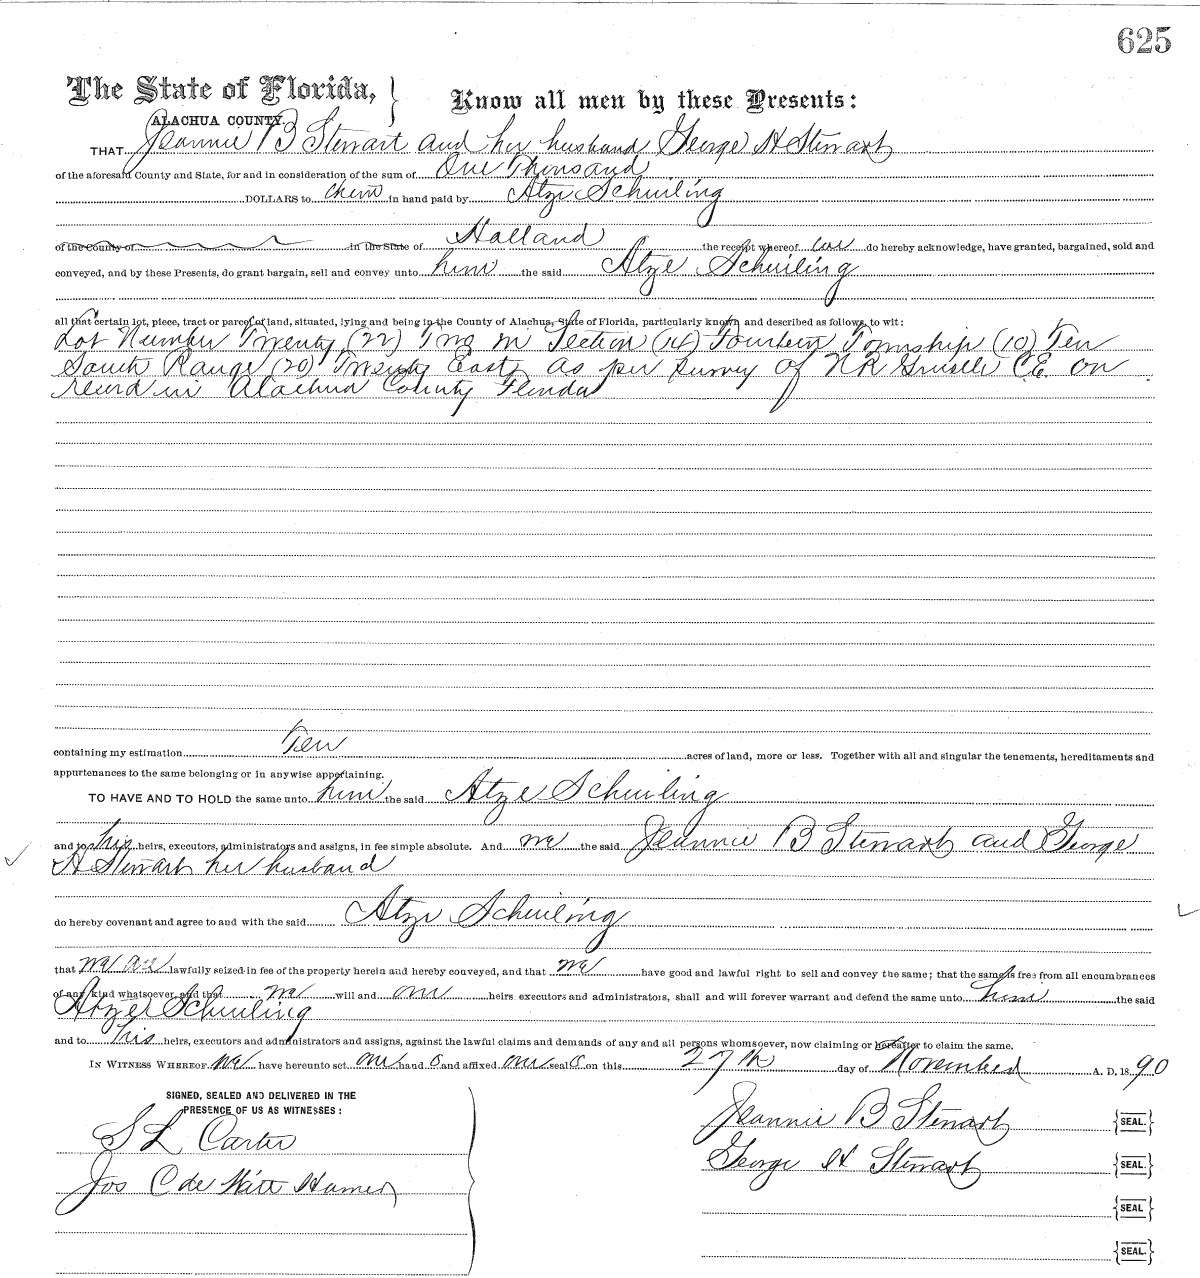 625
The State of Florida, } Know all men by these Presents:
ALACHUA COUNTY.
THAT Jeannie B Stewart and her husband George H Stewart
of the aforesaid County and State, for and in consideration of the sum of One Thousand
DOLLARS to them in hand paid by Atze Schuiling
of the County of in the State of Holland the receipt whereof we do hereby acknowledge, have granted, bargained, sold and
conveyed, and by these Presents, do grant bargain, sell and convey unto him the said Atze Schuiling
all that certain lot, piece, tract or parcel of land, situated, lying and being in the County of Alachua, State of Florida, particularly known and described as follows, to wit:
Lot Number Twenty (22) Two in Section (14) Fourteen Township (10) Ten
South Range (20) Twenty East as per survey of N R C.E. on
record in Alachua County Florida
containing my estimation Ten acres of land, more or less. Together with all and singular the tenements, hereditaments and
appurtenances to the same belonging or in anywise appertaining.
TO HAVE AND TO HOLD the same unto him the said Atze Schuiling
and to his heirs, executors, administrators and assigns, in fee simple absolute. And we the said Jeannie B Stewart and George
H Stewart her husband
do hereby covenant and agree to and with the said Atze Schuiling
that we are lawfully seized in fee of the property herein and hereby conveyed, and that we have good and lawful right to sell and convey the same; that the same is free from all encumbrances
of any kind whatsoever, and that we will and our heirs executors and administrators, shall and will forever warrant and defend the same unto him the said
Atzer Schuiling
and to his heirs, executors and administrators and assigns, against the lawful claims and demands of any and all persons whomsoever, now claiming or hereafter to claim the same.
IN WITNESS WHEREOF we have hereunto set our hand s and affixed our seal s on this 27th day of November A. D. 18 90
SIGNED, SEALED AND DELIVERED IN THE
PRESENCE OF US AS WITNESSES:
S L Carter
Jos C de
Jeannie B Stewart {SEAL.}
George H Stewart {SEAL.}
{SEAL}
{SEAL.}